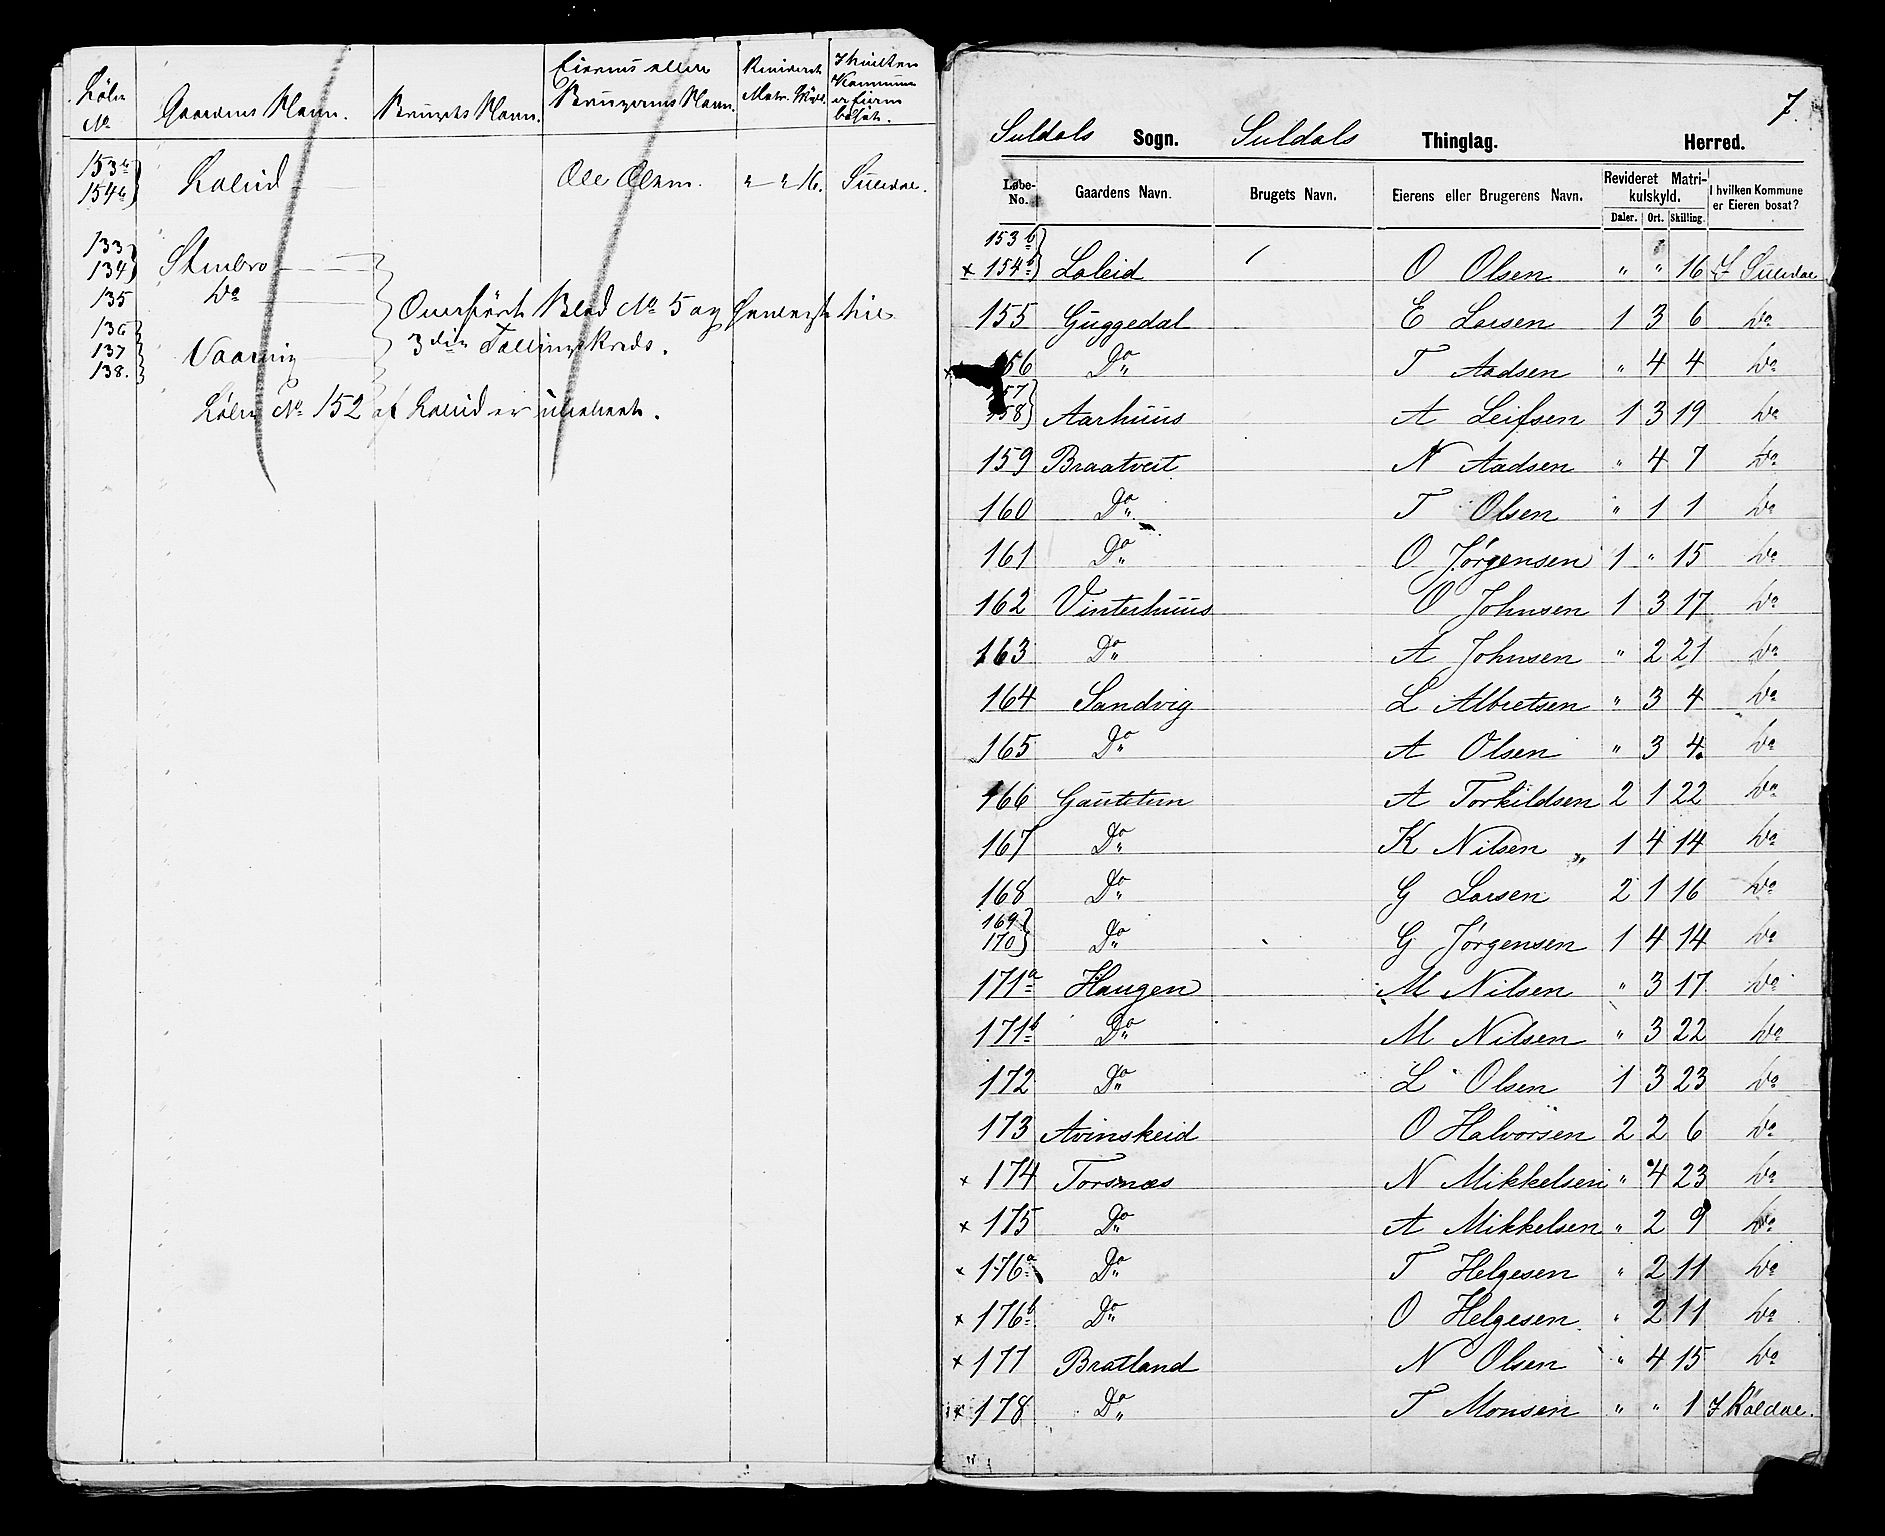 Løbe No. Gaardens Navn. Brugets Navn. Eierens eller Brugerens Navn. Revideret Matr. Skyld. I hvilken Kommune er Eieren bosat.
153a
154a Loleid Ole Olsen. " — " 16. Suledal.
133
134 Stenbro
135 Do
136
137 Vaaning
138.
Overført Blad No 5 og henlagt til
3die Tællingskreds.
Løbe No 152 af Loleid er ubeboet.
7.
Suldals Sogn. Suldals Thinglag. Herred.
Løbe-No. Gaardens Navn. Brugets Navn. Eierens eller Brugerens Navn. Revideret Matrikulskyld. I hvilken Kommune er Eieren bosat?
Daler. Ort. Skilling
153b
x 154b Loleid O Olsen " " 16 I Suledal
155 Guggedal E Larsen 1 3 6 Do
x 156 Do T Aadsen " 4 4 Do
157
158 Aarhuus A Leifsen 1 3 19 Do
159 Braatveit N Aadsen " 4 7 Do
160 Do T Olsen " 1 1 Do
161 Do O Jørgensen 1 " 15 Do
162 Vinterhuus O Johnsen 1 3 17 Do
163 Do A Johnsen " 2 21 Do
164 Sandvig L Albretsen " 3 4 Do
165 Do A Olsen " 3 4 Do
166 Gautetun A Torkildsen 2 1 22 Do
167 Do K Nilsen 1 4 14 Do
168 Do G Larsen 2 1 16 Do
169
170 Do G Jørgensen 1 4 14 Do
171a Haugen M Nilsen " 3 17 Do
171b Do M Nilsen " 3 22 Do
172 Do L Olsen 1 3 23 Do
173 Avinskeid O Halvorsen 2 2 6 Do
x 174 Torsnæs N Mikkelsen " 4 23 Do
x 175 Do A Mikkelsen " 2 9 Do
x 176a Do T Helgesen " 2 11 Do
x 176b Do O Helgesen " 2 11 Do
x 177 Bratland N Olsen " 4 15 Do
x 178 Do T Monsen " " 1 I Røldal.